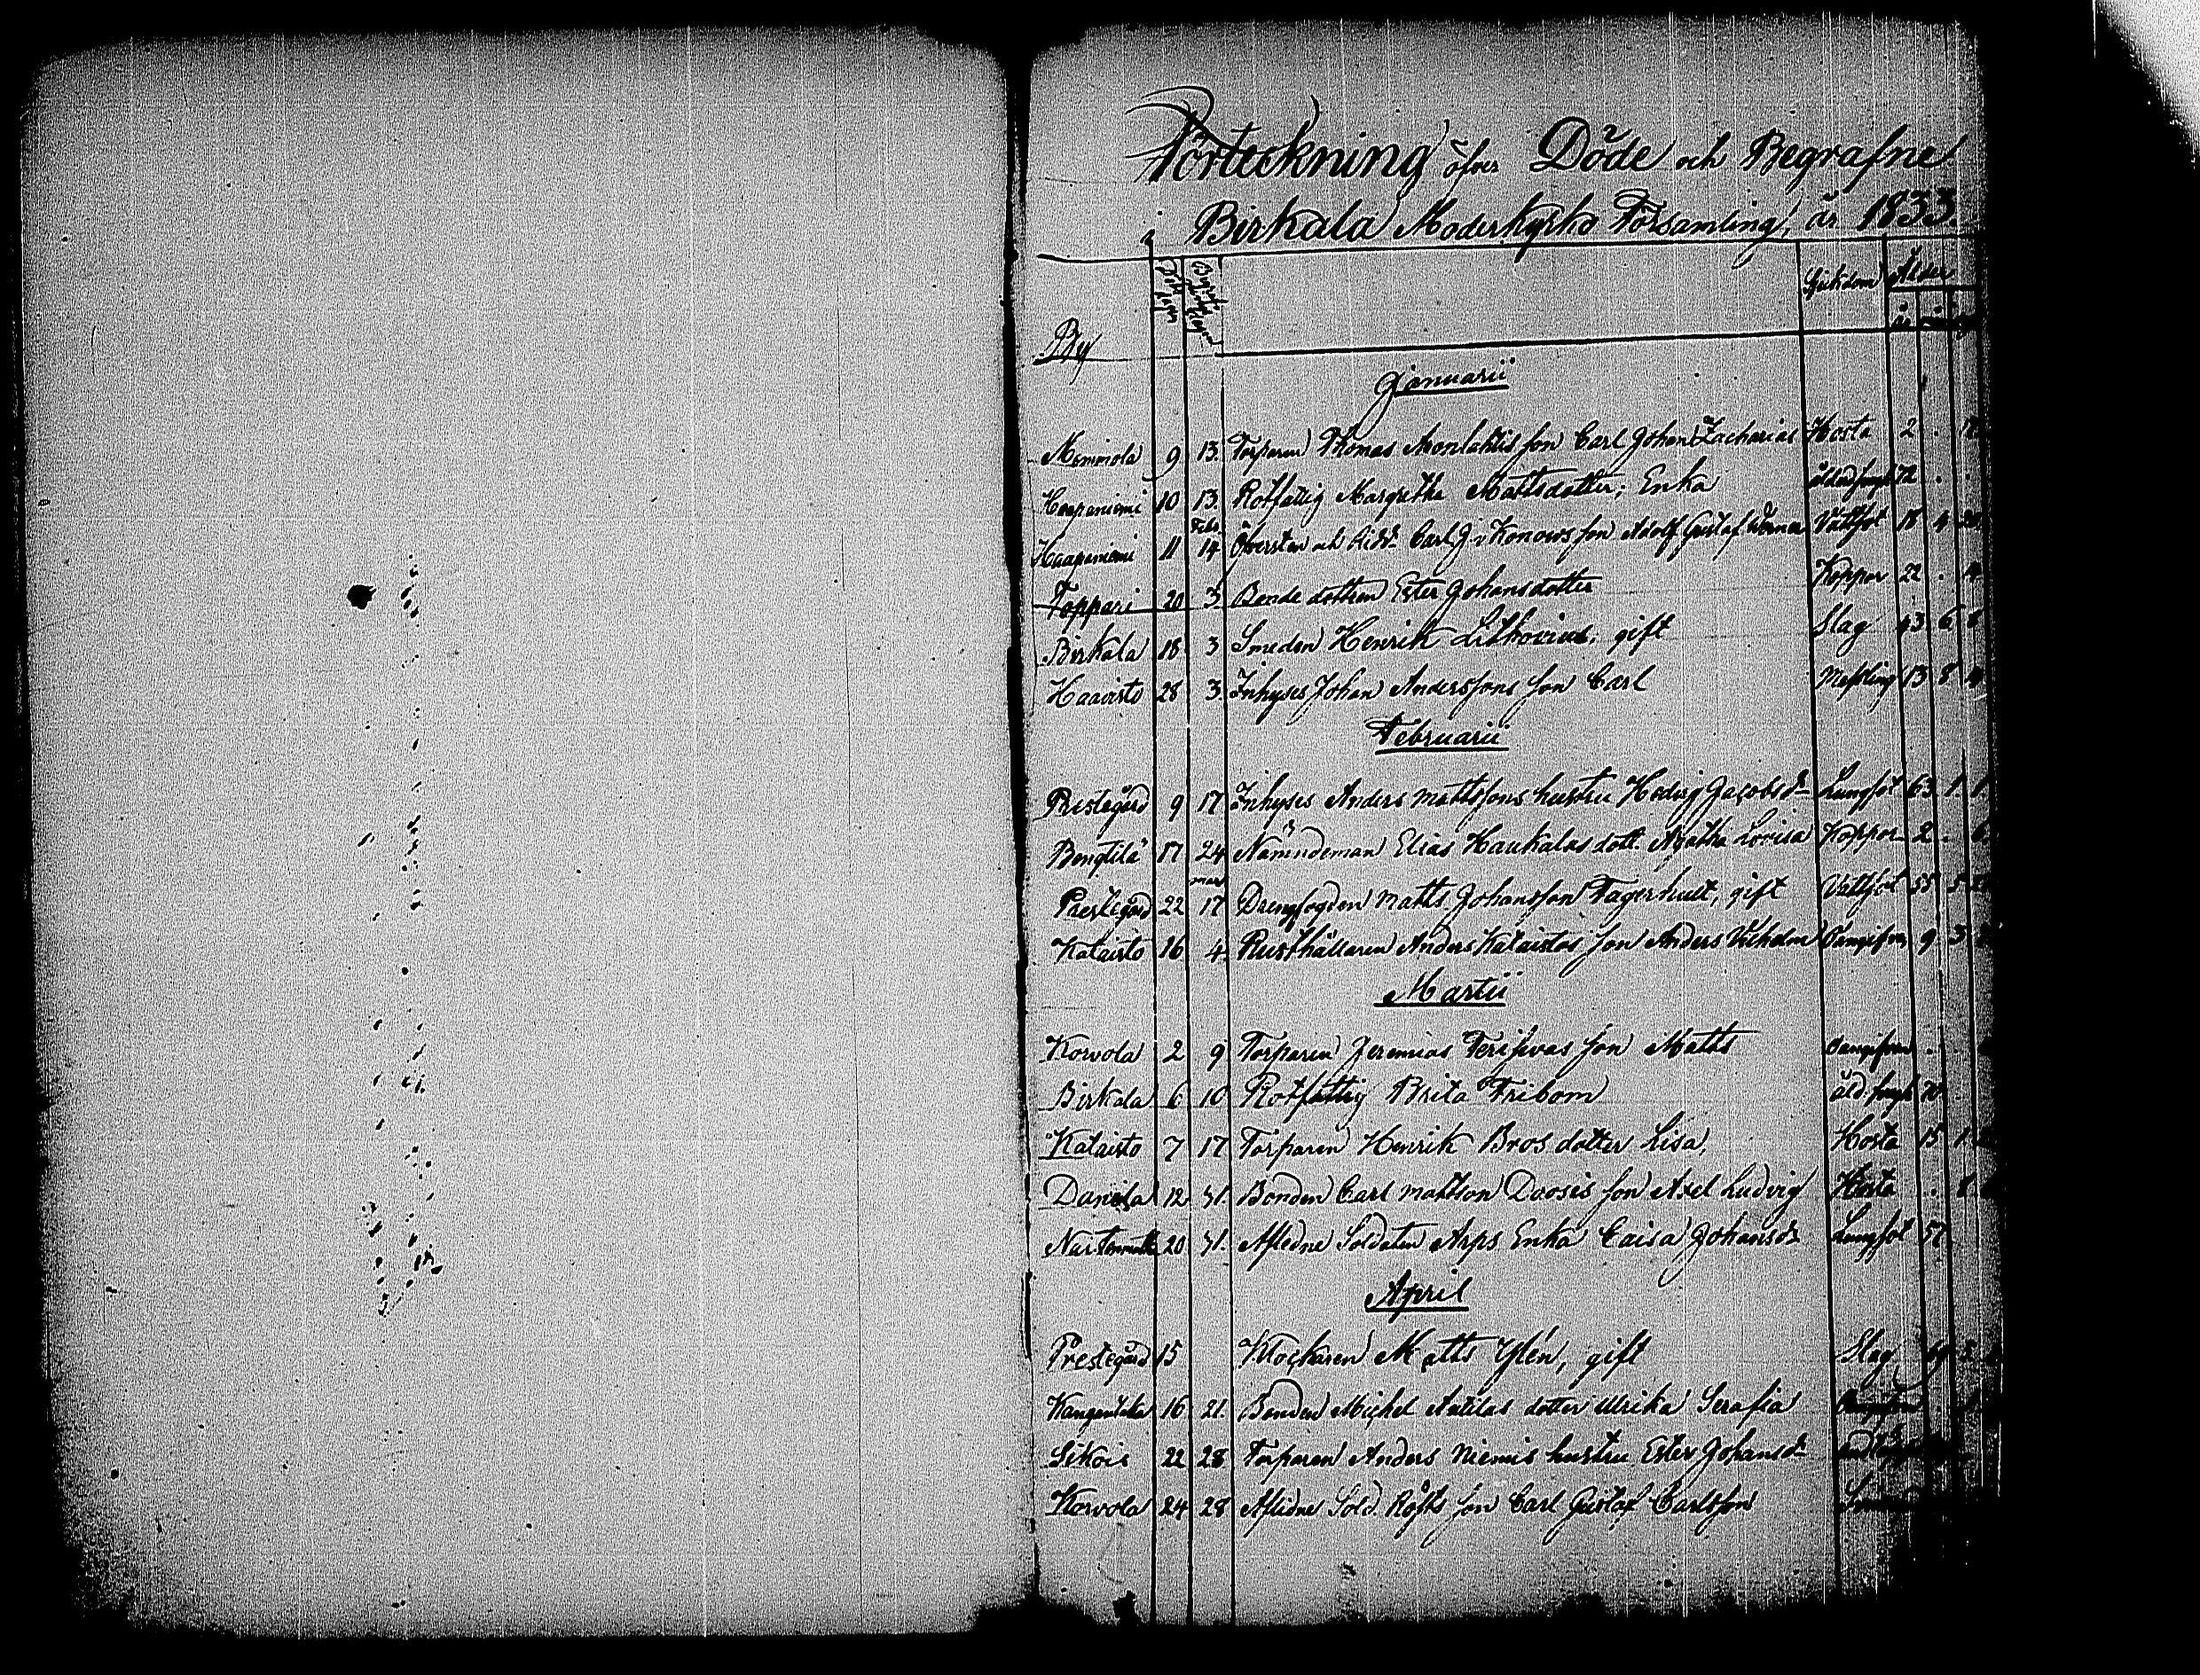 Förteckning öfver Döde och Begrafne
i Birkala Moderkyrko Församling, år 1833
By Sjukdom Ålder
år
Januarii
Nemmola 9 13. Torparen Thomas son Carl Johan Zacharias Hosta 2 .
Haapaniemi 10 13. Rotfattig Margretha Mattsdotter; Enka 72 . .
Febr.
Haapaniemi 11 14 Öfversten och Ridd. Carl J. v Konows son Adolf Gustaf Werner Vattsot 18 4
Toppari 20 3. Bonde dottren Ester Johansdotter Koppor 22 . 4
Birkala 18 3 Smeden Henrik Lithovius, gift Slag 43 6 8
Haavisto 28 3. Inhyses Johan Anderssons son Carl Messling 13 8
Februarii
Prestegård 9 17 Inhyses Anders Mattssons hustru Hedvig Jacobsdr Lungsot 63 1 1.
Bengtilä 17 24 Nämndeman Elias Haukalas dott. Agatha Lovisa Koppor 2 . 6
mars
Prestegård 22 17 Drengfogden Matts Johansson Fagerhult, gift Vattsot 55 5
Kataisto 16 4. Rusthållaren Anders Kataistos son Anders Vilhelm 9 3
Martii
Korvola 2 9 Torparen Jeremias son Matts .
Birkala 6 10 Rotfattig Brita Fribom 70
Kataisto 7 17 Torparen Henrik Bros dotter Lisa, Hosta 15 1
Daniela 12 31. Bonden Carl Mattson Daosis son Axel Ludvig Hosta . 8
20 31. Afledne Soldaten Arps Enka Caisa Johansdr Lungsot 57
April
Prestegård 15 Klockaren Matts Ylén, gift Slag 69 2
16 21. Bonden Michel Anttilas dotter Ulrika Serafia
Sikois 22 28 Torparen Anders Niemis hustru Ester Johansdr
Korvola 24 28 Afledne Sold. son Carl Gustaf Carlsson